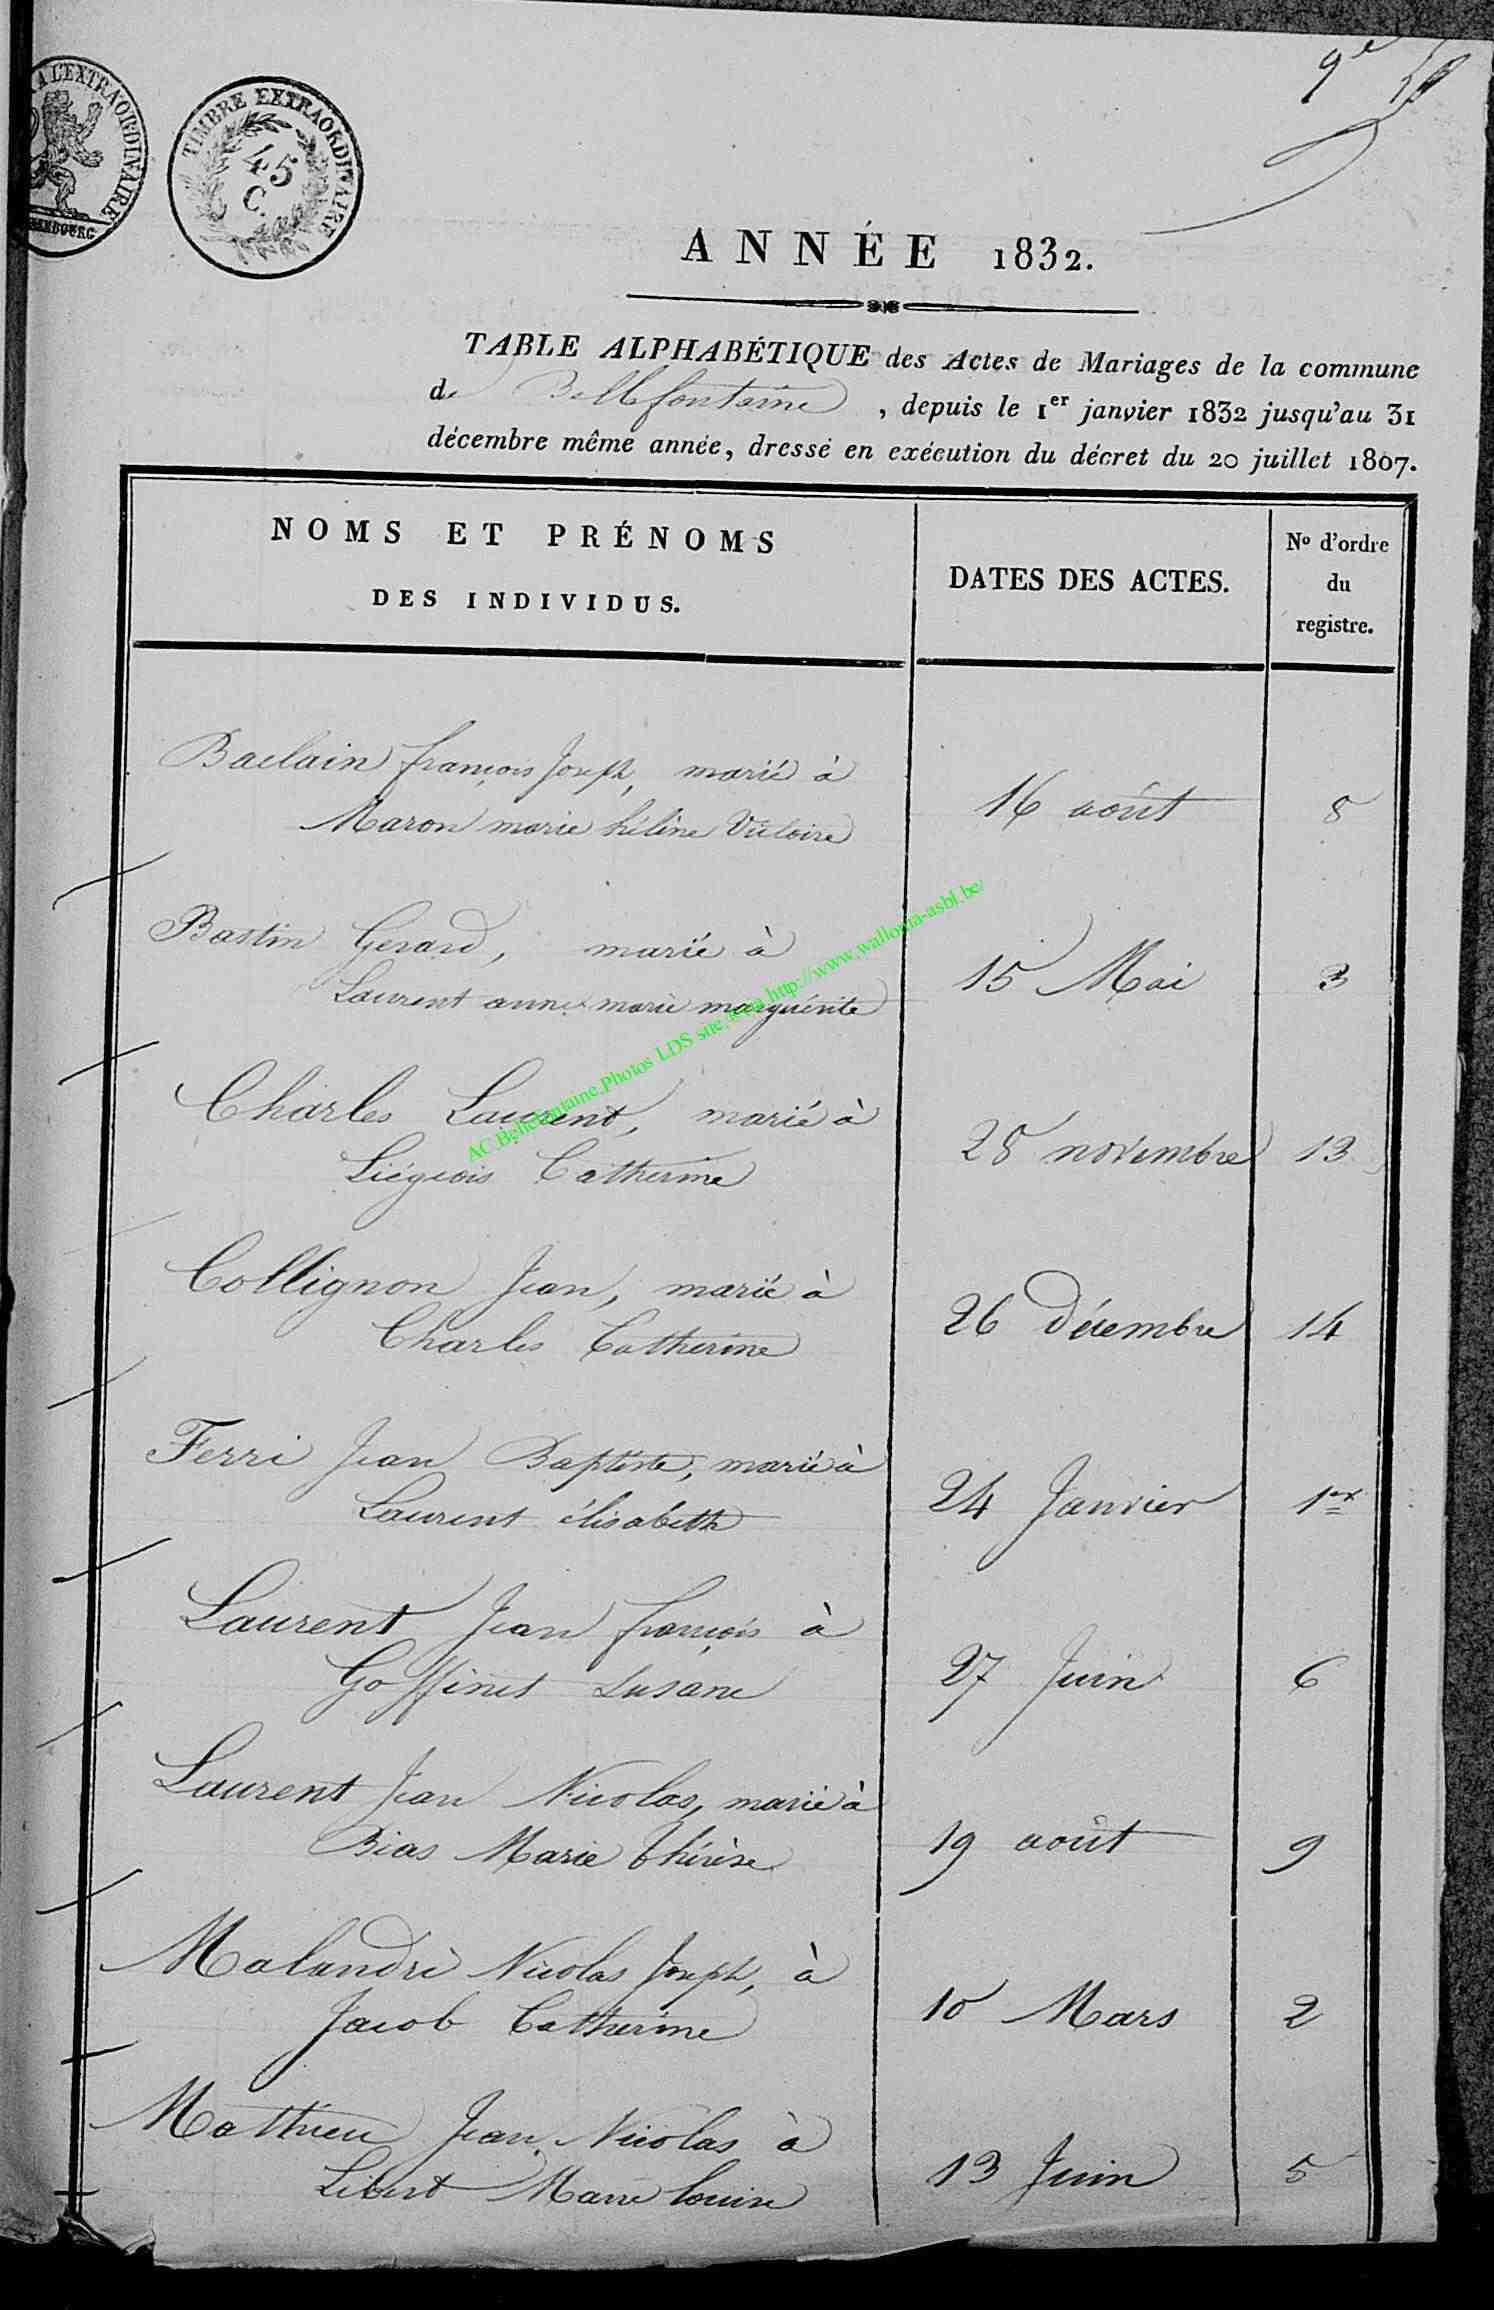 A L'EXTRAORDINAIRE
TIMBRE EXTRAORDINAIRE
45
C.
9e
ANNÉE 1832.
TABLE ALPHABÉTIQUE des Actes de Mariages de la commune
de Bellefontaine, depuis le 1er janvier 1832 jusqu'au 31
décembre même année, dressé en exécution du décret du 20 juillet 1807.
NOMS ET PRÉNOMS
DES INDIVIDUS.
DATES DES ACTES.
No d'ordre
du
registre.
Baclain françois Joseph, marié à
Maron marie hélène Victoire
16 août
8
Bastin Gerard, marié à
Laurent anne marie marguérite
15 Mai
3
Charles Laurent, marié à
Liégeois Catherine
28 novembre
13
Collignon Jean, marié à
Charles Catherine
26 décembre
14
Ferri Jean Baptiste, marié à
Laurent élisabeth
24 Janvier
1er
Laurent Jean françois à
Goffinet Susane
27 Juin
6
Laurent Jean Nicolas, marié à
Bias Marie thérèse
19 août
9
Malandri Nicolas Joseph, à
Jacob Catherine
10 Mars
2
Mathieu Jean Nicolas à
Libert Marie louise
13 Juin
5
AC.Bellefontaine.Photos LDS site http://www.wallonia-asbl.be/